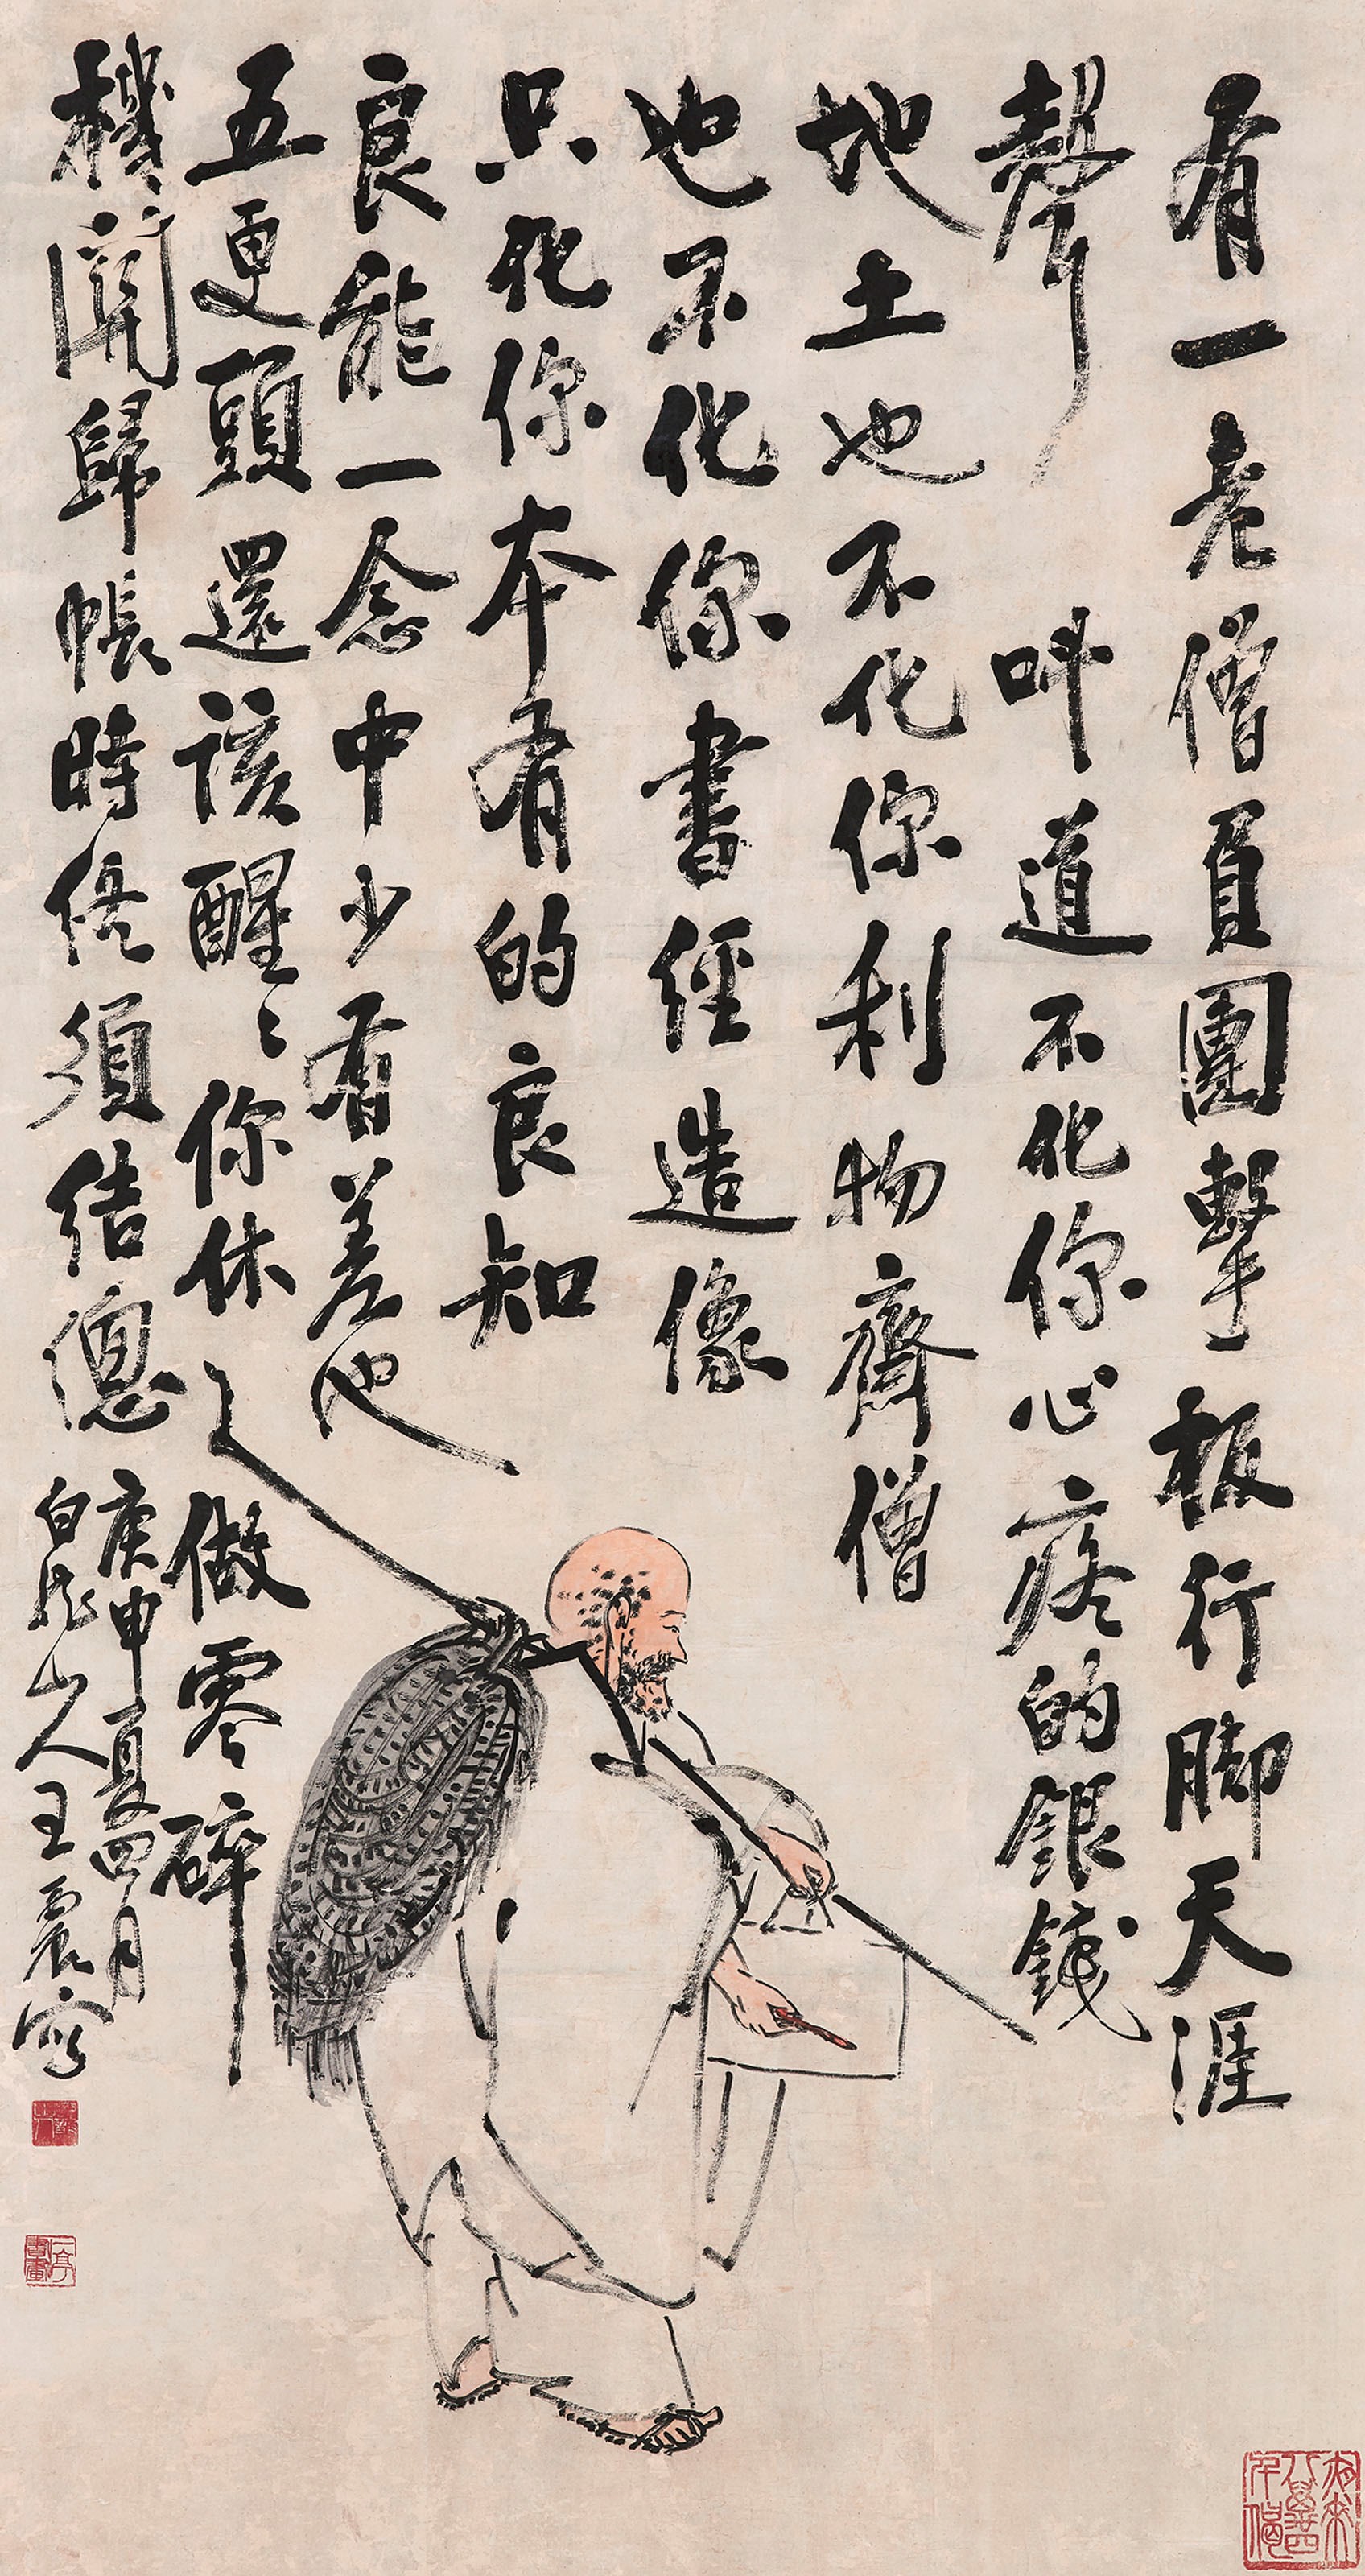 有一老僧負團擊板行脚天涯
聲 叫道不化你心疼的銀錢
地土也不化你利物齋僧
也不化你書經造像
只化你本有的良知
良能一念中少有差池
五更頭還該醒〻你休 做零碎
機關歸帳時終須結總
庚申夏四月
白龍山人王震寫
一亭書畫